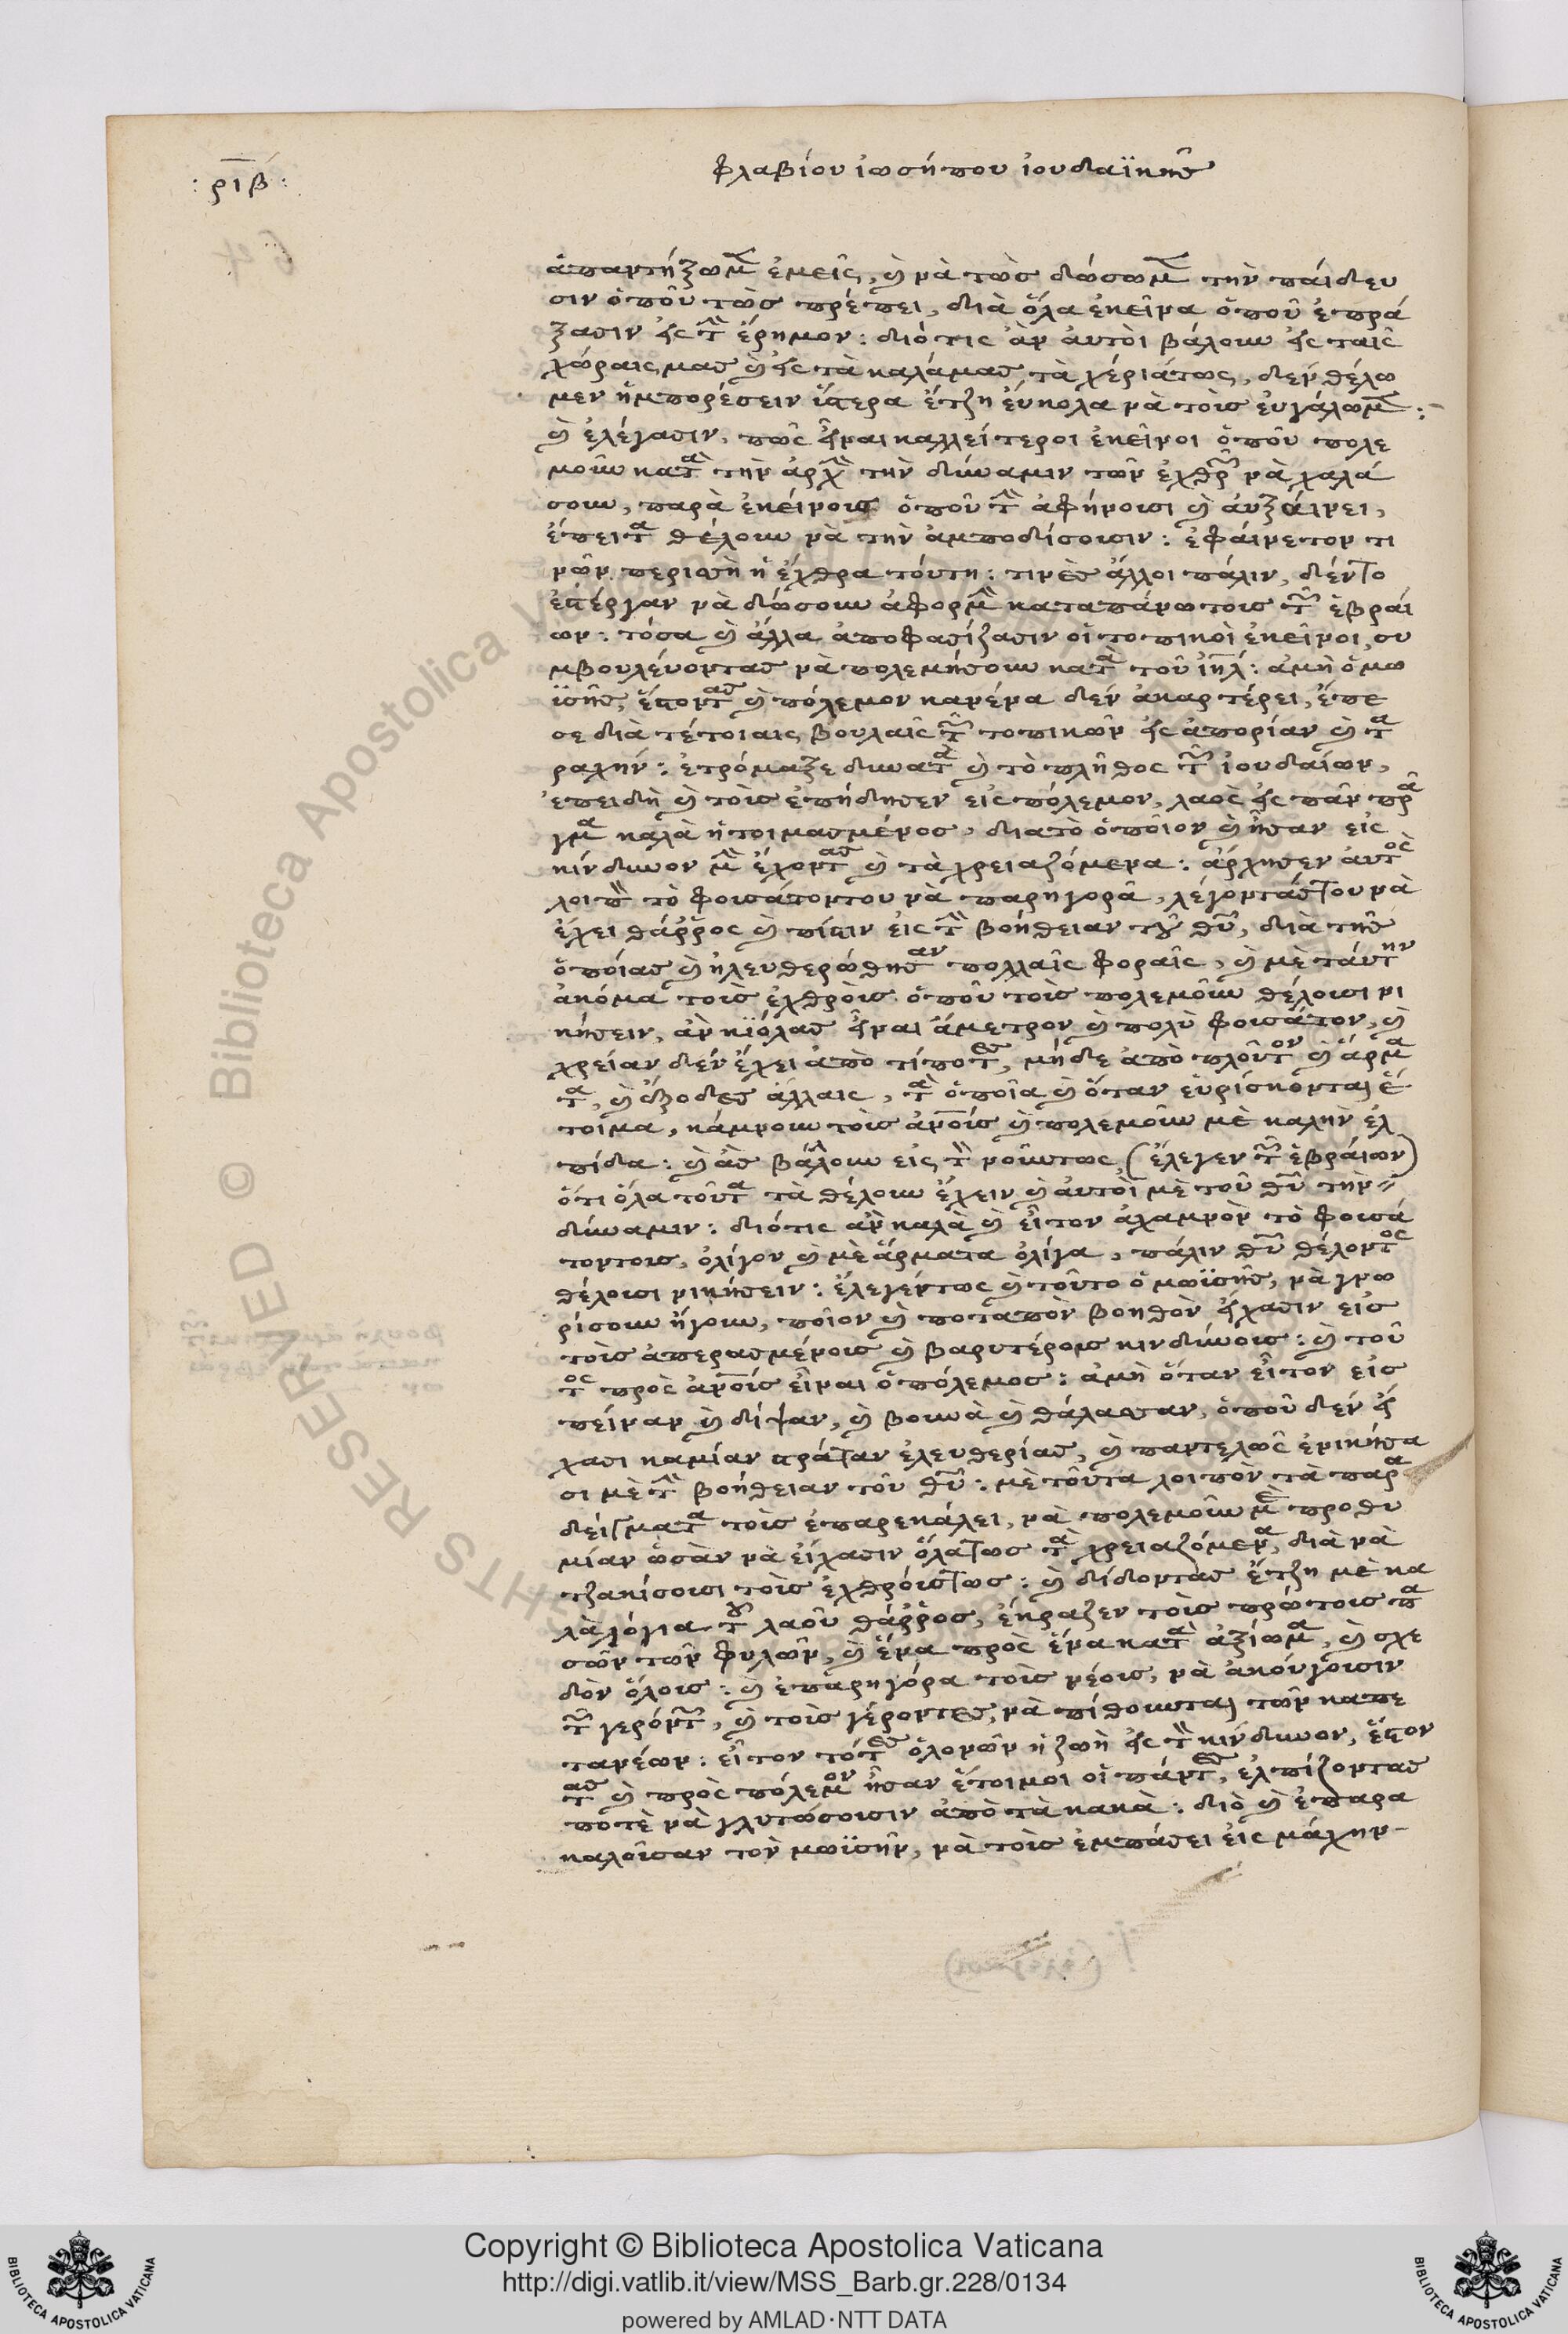 : ριβ :
φλαβίου ἰωσήπου ἰουδαϊκῆς
ἀπαντήξωμεν ἐμεῖς, καὶ νὰ τῶς δώσωμεν τὴν παίδευ
σιν ὁποῦ τῶς πρέπει, διὰ ὅλα ἐκεῖνα ὁποῦ ἐπρά
ξασιν εἰς τὴν ἔρημον : διότις ἂν αὐτοὶ βάλουν εἰς ταῖς
χώραις μας καὶ εἰς τὰ καλά μας τὰ χέριά τως, δεν θέλο
μεν ἡμπορέσειν ὕστερα ἔτζη εὔκολα νὰ τοὺς εὐγάλωμεν :
καὶ ἐλέγασιν, πῶς εἶναι καλλείτεροι ἐκεῖνοι ὁποῦ πολε
μοῦν κατὰ τὴν ἀρχὴν τὴν δύναμιν τῶν ἐχθρῶν νὰ χαλά
σουν, παρὰ ἐκείνους ὁποῦ τὴν ἀφήνουσι καὶ αὐξαίνει,
ἔπειτα θέλουν νὰ τὴν ἀμποδίσουσιν : ἐφαίνετον τι
νῶν περισὴ ἡ ἔχθρα τούτη : τινὲς ἄλλοι πάλιν, δέν το
ἐστέργαν νὰ δώσουν ἀφορμὴν καταπάνω τους τῶν ἑβραί
ων : τόσα καὶ ἄλλα ἀποφασίζασιν οἱ τοπικοὶ ἐκεῖνοι, συ
μβουλεύοντας νὰ πολεμήσουν κατὰ τοῦ ἰηλ : ἀμὴ ὁ μω
ϋσῆς, ἔστοντας καὶ πόλεμον κανένα δεν ἀκαρτέρει, ἔπε
σε διὰ τέτοιαις βουλαῖς τῶν τοπικῶν εἰς ἀπορίαν καὶ τα
ραχήν : ἐτρόμαξε δυνατὰ καὶ τὸ πλῆθος τῶν ἰουδαίων,
ἐπειδὴ καὶ τοὺς ἐπήδησεν εἰς πόλεμον, λαὸς εἰς πᾶν πρᾶ
γμα καλὰ ἡτοιμασμένος, διατὸ ὁποῖον καὶ ἦσαν εἰς
κίνδυνον μὴν ἔχοντας καὶ τὰ χρειαζόμενα : ἄρχησεν αὐτὸς
λοιπὸν τὸ φουσάτον του νὰ παρηγορᾶ, λέγοντάς του νὰ
ἔχει θάῤῥος καὶ πίστιν εἰς τὴν βοήθειαν τοῦ θῦ, διὰ τῆς
ὁποίας καὶ ηλευθερώθησαν πολλαῖς φοραῖς, καὶ μὲ ταύτην
ἀκόμα τοὺς ἐχθροὺς ὁποῦ τοὺς πολεμοῦν θέλουσι νι
κήσειν, ἂν κϊόλας εἶναι ἄμετρον καὶ πολὺ φουσάτον, καὶ
χρείαν δεν ἔχει ἀπὸ τίποτες, μήδε ἀπὸ πλοῦτον καὶ ἄρμα
τα, καὶ ἔξοδες ἄλλαις, τὰ ὁποῖα καὶ ὅταν εὑρίσκονται ἕ
τοιμα, κάμνουν τοὺς ἀνοὺς καὶ πολεμοῦν μὲ καλὴν ἐλ
πίδα : καὶ ἂς βάλουν εἰς τὸν νοῦν τως (ἔλεγεν τῶν ἑβραίων)
ὅτι ὅλα τοῦτα τὰ θέλουν ἔχειν καὶ αὐτοὶ μὲ τοῦ θῦ τὴν
δύναμιν : διότις ἂν καλὰ καὶ εἶτον ἀχαμνὸν τὸ φουσά
τον τους, ὀλίγον καὶ μὲ ἄρματα ὀλίγα, πάλιν θῦ θέλοντος
θέλουσι νικήσειν : ἐλεγέν τως καὶ τοῦτο ὁ μωϋσῆς, νὰ γνω
ρίσουν ἤγουν, ποῖον καὶ ποταπὸν βοηθὸν εἴχασιν εἰς
τοὺς ἀπερασμένους καὶ βαρυτέρους κινδύνους : καὶ τοῦ
τος πρὸς ἀνοὺς εἶναι ὁ πόλεμος : ἀμὴ ὅταν εἶτον εἰς
πεῖναν καὶ δίψαν, καὶ βουνὰ καὶ θάλασσαν, ὁποῦ δεν εἴ
χασι καμίαν στράταν ἐλευθερίας, καὶ παντελῶς ἐνικήσα
σι μὲ τὴν βοήθειαν τοῦ θῦ : μὲ τοῦτα λοιπὸν τὰ παρα
δείγματα τοὺς ἐπαρεκάλει, νὰ πολεμοῦν μὲ προθυ
μίαν ὡσὰν νὰ εἴχασιν ὅλα τως τὰ χρειαζόμενα, διὰ νὰ
τζακίσουσι τοὺς ἐχθρούς τως : καὶ δίδοντας ἔτζη μὲ κα
λὰ λόγια τοῦ λαοῦ θάῤῥος, ἔκραζεν τοὺς πρώτους πα
σῶν τῶν φυλῶν, καὶ ἕνα πρὸς ἕνα κατὰ ἀξίωμα, καὶ σχε
δὸν ὅλους : καὶ ἐπαρηγόρα τοὺς νέους, νὰ ἀκούγουσιν
τῶν γερόντων, καὶ τοὺς γέροντες, νὰ πίθουνται τῶν καπε
τανέων : εἶτον τότες ὁλονῶν ἡ ζωὴ εἰς τὸν κίνδυνον, ἔστον
τας καὶ πρὸς πόλεμον ἦσαν ἕτοιμοι οἱ πάντες, ἐλπίζοντας
ποτὲ νὰ γλυτώσουσιν ἀπὸ τὰ κακὰ : διὸ καὶ ἐπαρα
καλοῦσαν τὸν μωϋσῆν, νὰ τοὺς ἐμπάσει εἰς μάχην
RESERVED © Biblioteca Apostolica Vaticana
Copyright © Biblioteca Apostolica Vaticana
http://digi.vatlib.it/view/MSS_Barb.gr.228/0134
powered by AMLAD·NTT DATA
BIBLIOTECA APOSTOLICA VATICANA
BIBLIOTECA APOSTOLICA VATICANA